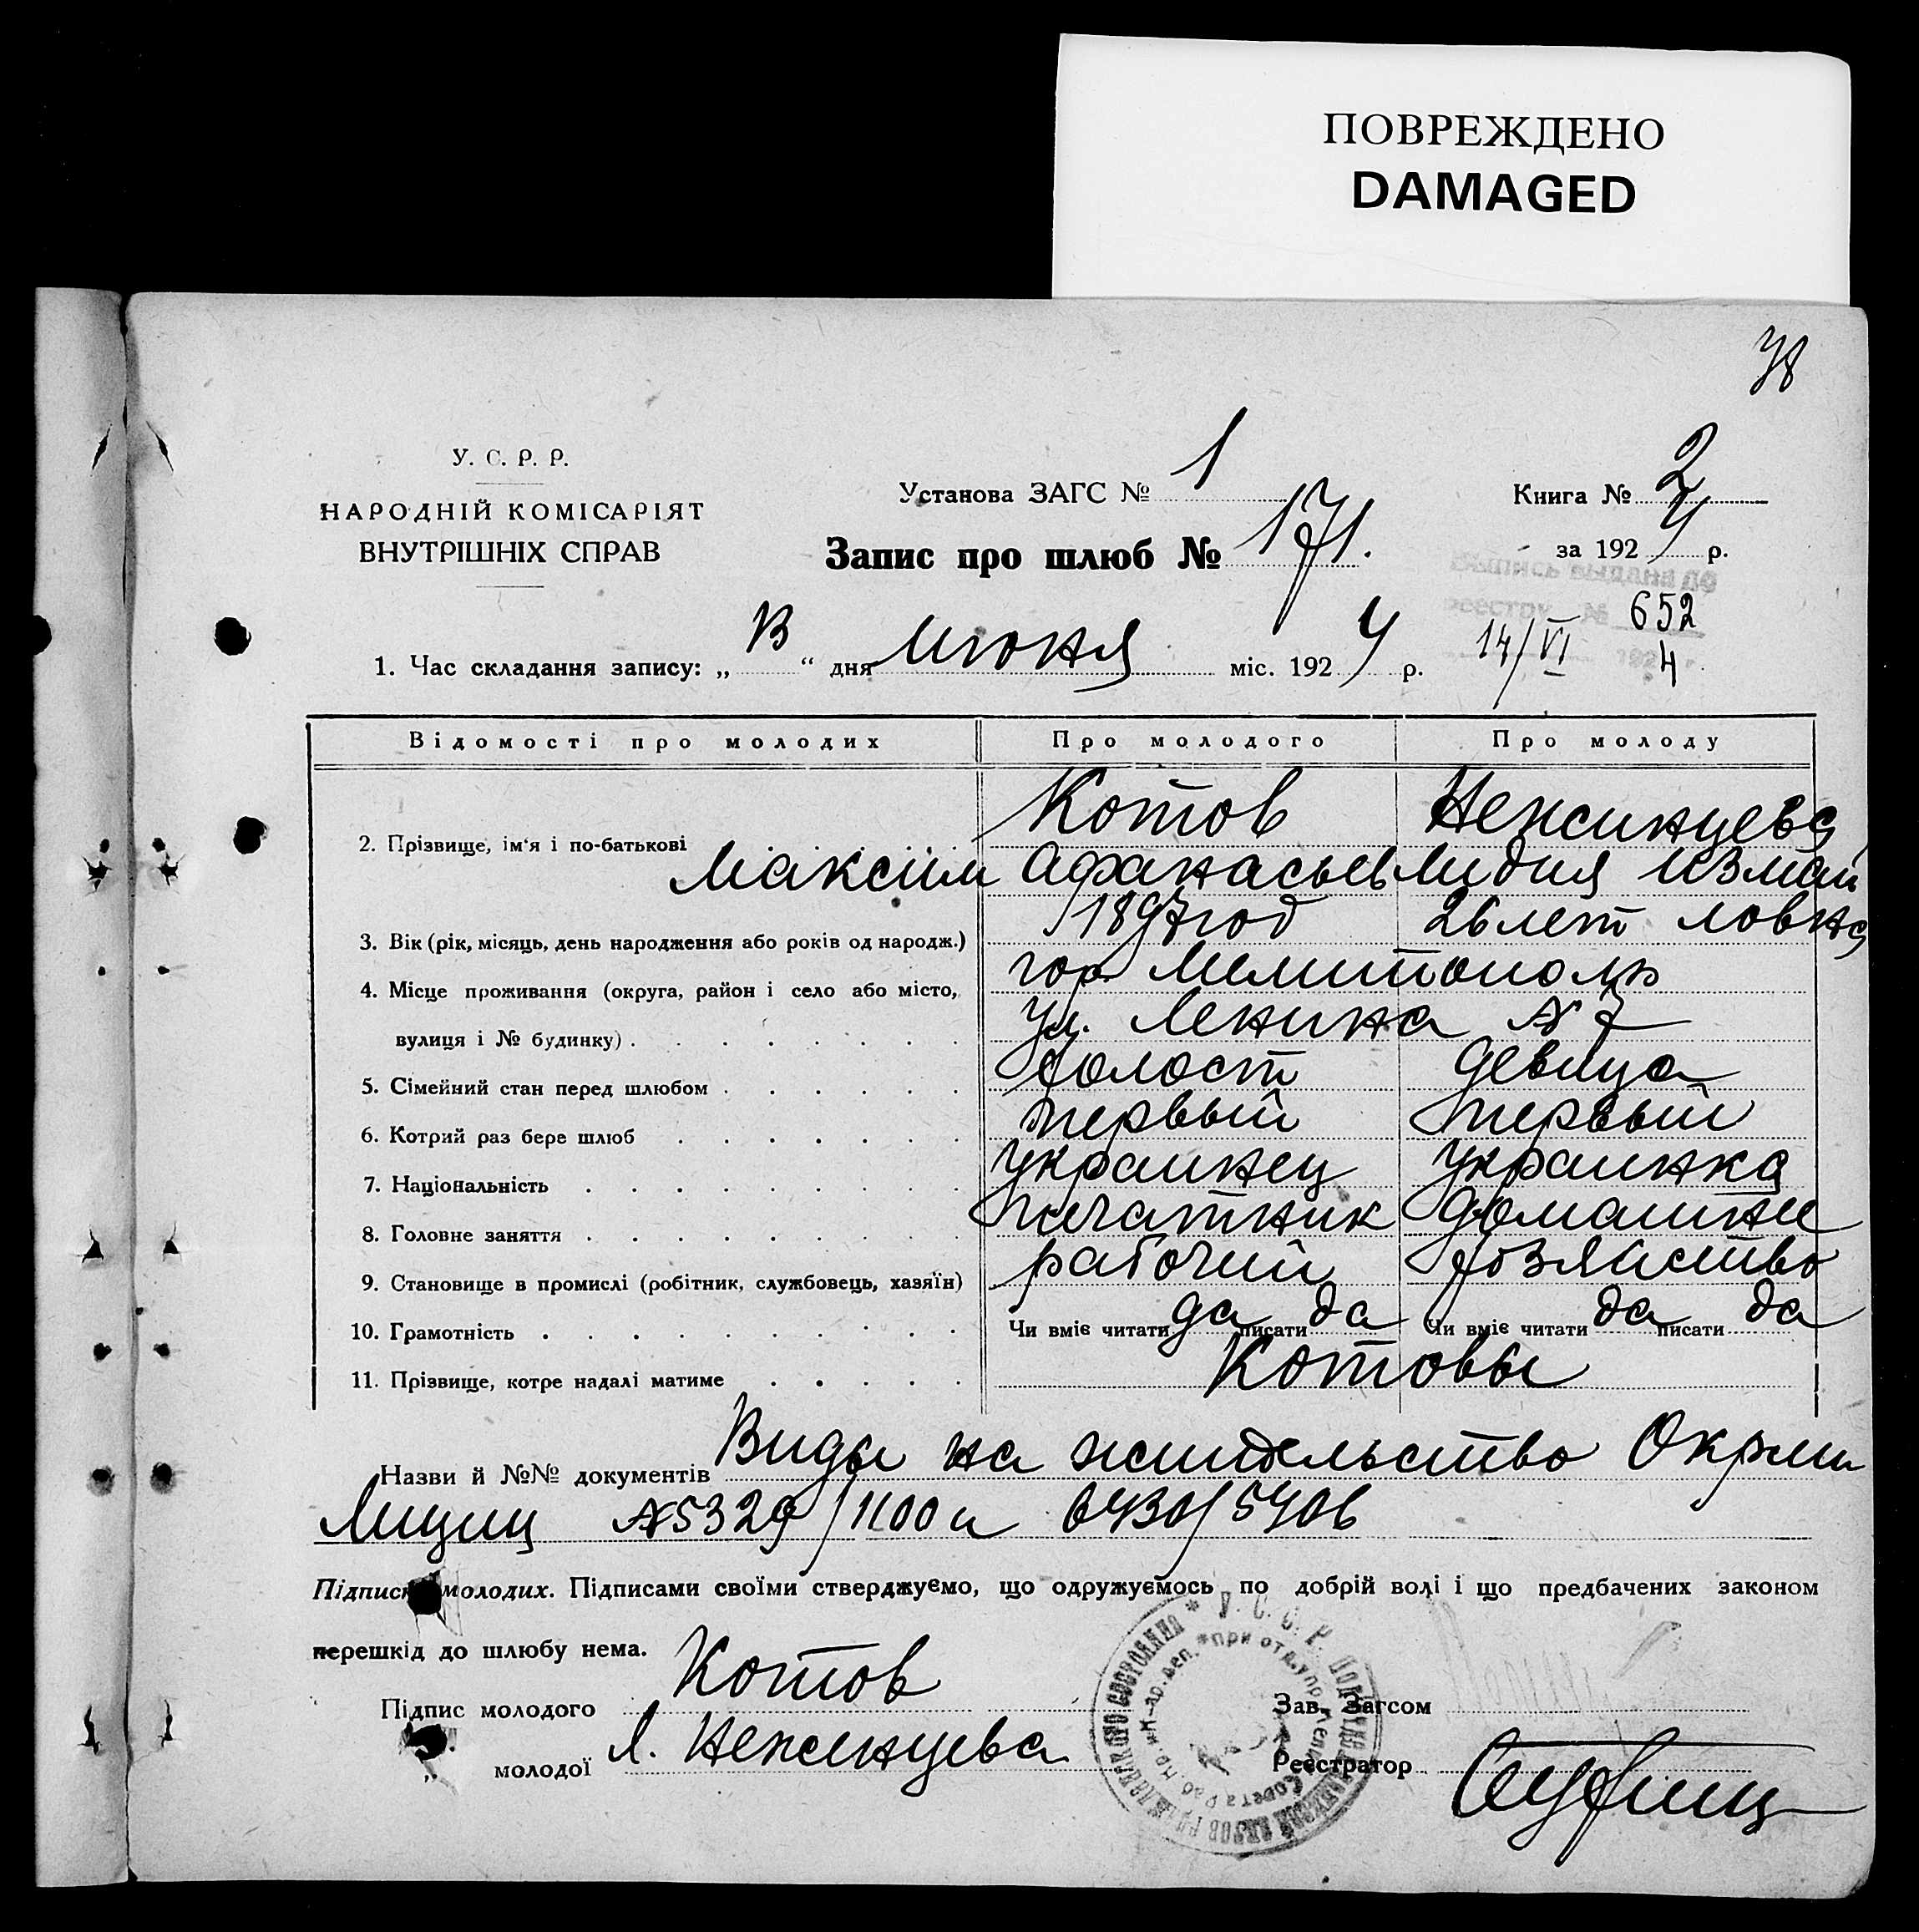 ПОВРЕЖДЕНО
DAMAGED
78
У. С. Р. Р.
НАРОДНІЙ КОМІСАРІЯТ
ВНУТРІШНІХ СПРАВ
Установа ЗАГС № 1
Запис про шлюб № 171.
Книга № 2
за 1924 р.
Выпись выдана по
реестру № 652
14/VI 1924 г.
1. Час складання запису: „13“ дня Июня міс. 1924 р.
Відомості про молодих Про молодого Про молоду
2. Прізвище, ім'я і по-батькові Котов Неженцева
Максим Афанасьев Лидия Измаи
3. Вік (рік, місяць, день народження або років од народж.) 1897 год 26 лет ловна
4. Місце проживання (округа, район і село або місто, гор. Мелитополь
вулиця і № будинку) ул. Ленина № 7
5. Сімейний стан перед шлюбом холост девица
6. Котрий раз бере шлюб первый первый
7. Національність украинец украинка
8. Головне заняття печатник домашнее
9. Становище в промислі (робітник, службовець, хазяїн) рабочий хозяйство
10. Грамотність Чи вміє читати да писати да Чи вміє читати да писати да
11. Прізвище, котре надалі матиме Котовы
Назви й №№ документів Виды на жительство Окрми
Лиции № 5329/1100 и 6430/5406
Підписи молодих. Підписами своїми стверджуємо, що одружуємось по добрій волі і що предбачених законом
перешкід до шлюбу нема.
Підпис молодого Котов
„ молодої Л. Неженцева
Зав. Загсом
Реєстратор